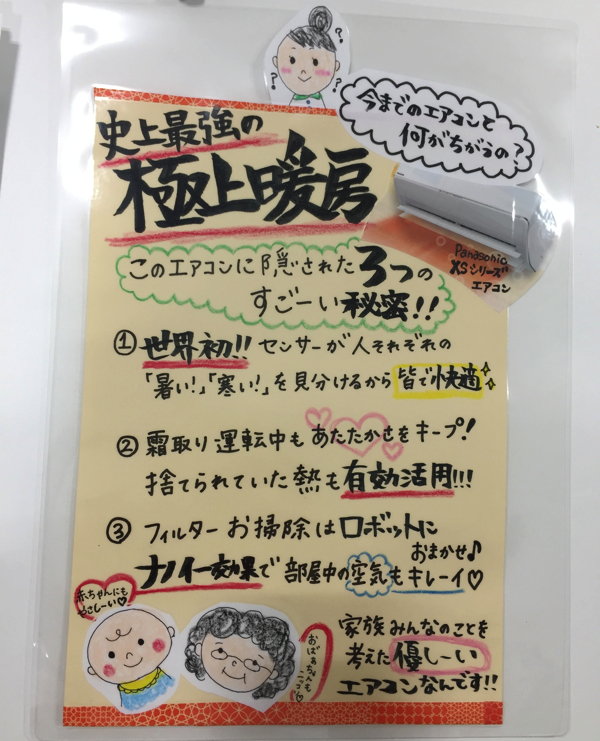 ?
?
?
今までのエアコンと
何がちがうの?
史上最強の
極上暖房
Panasonic
XSシリーズ
エアコン
このエアコンに隠された3つの
すごーい秘密!!
① 世界初!! センサーが人それぞれの
「暑い!」「寒い!」を見分けるから皆で快適
② 霜取り運転中もあたたかさをキープ!
捨てられていた熱も有効活用!!!
③ フィルターお掃除はロボットに
おまかせ♪
ナノイー効果で部屋中の空気もキレーイ♡
赤ちゃんにも
やさしーい♡
おばあちゃんも
ニッコリ♡
家族みんなのことを
考えた優しーい
エアコンなんです!!